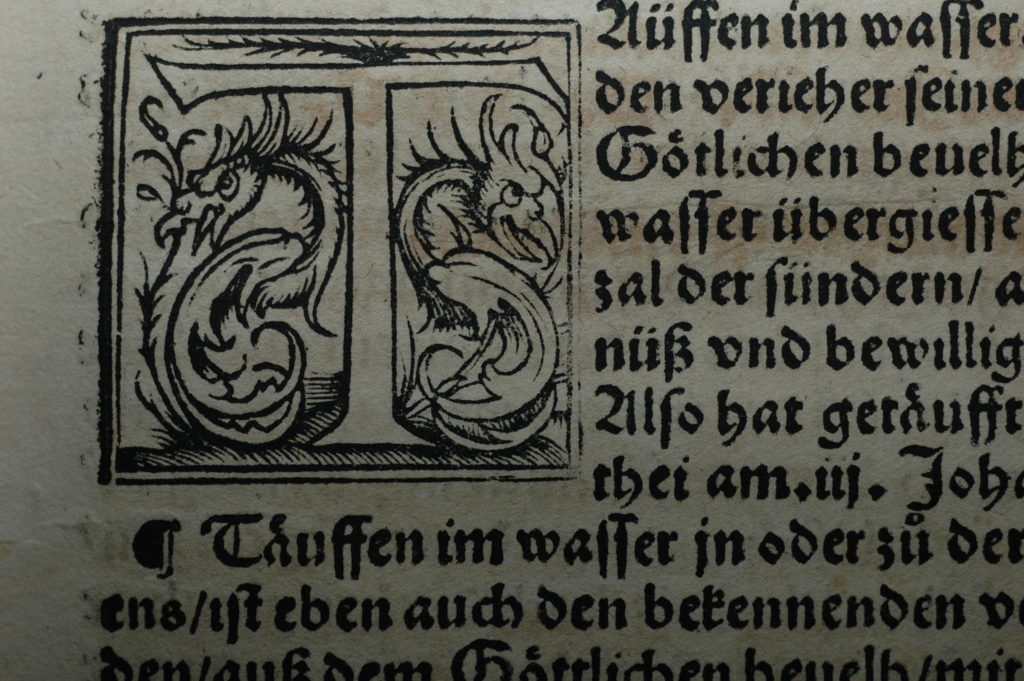 TAüffen im wasser
den verieher seiner
Götlichen beuelh
wasser übergiesse
zal der sündern/ a
nüß vnd bewillig
Also hat getäufft
thei am.iij. Joha
¶ Täuffen im wasser jn oder zů der
ens/ist eben auch den bekennenden ve
den/auß dem Göttlichen beuelh/mit